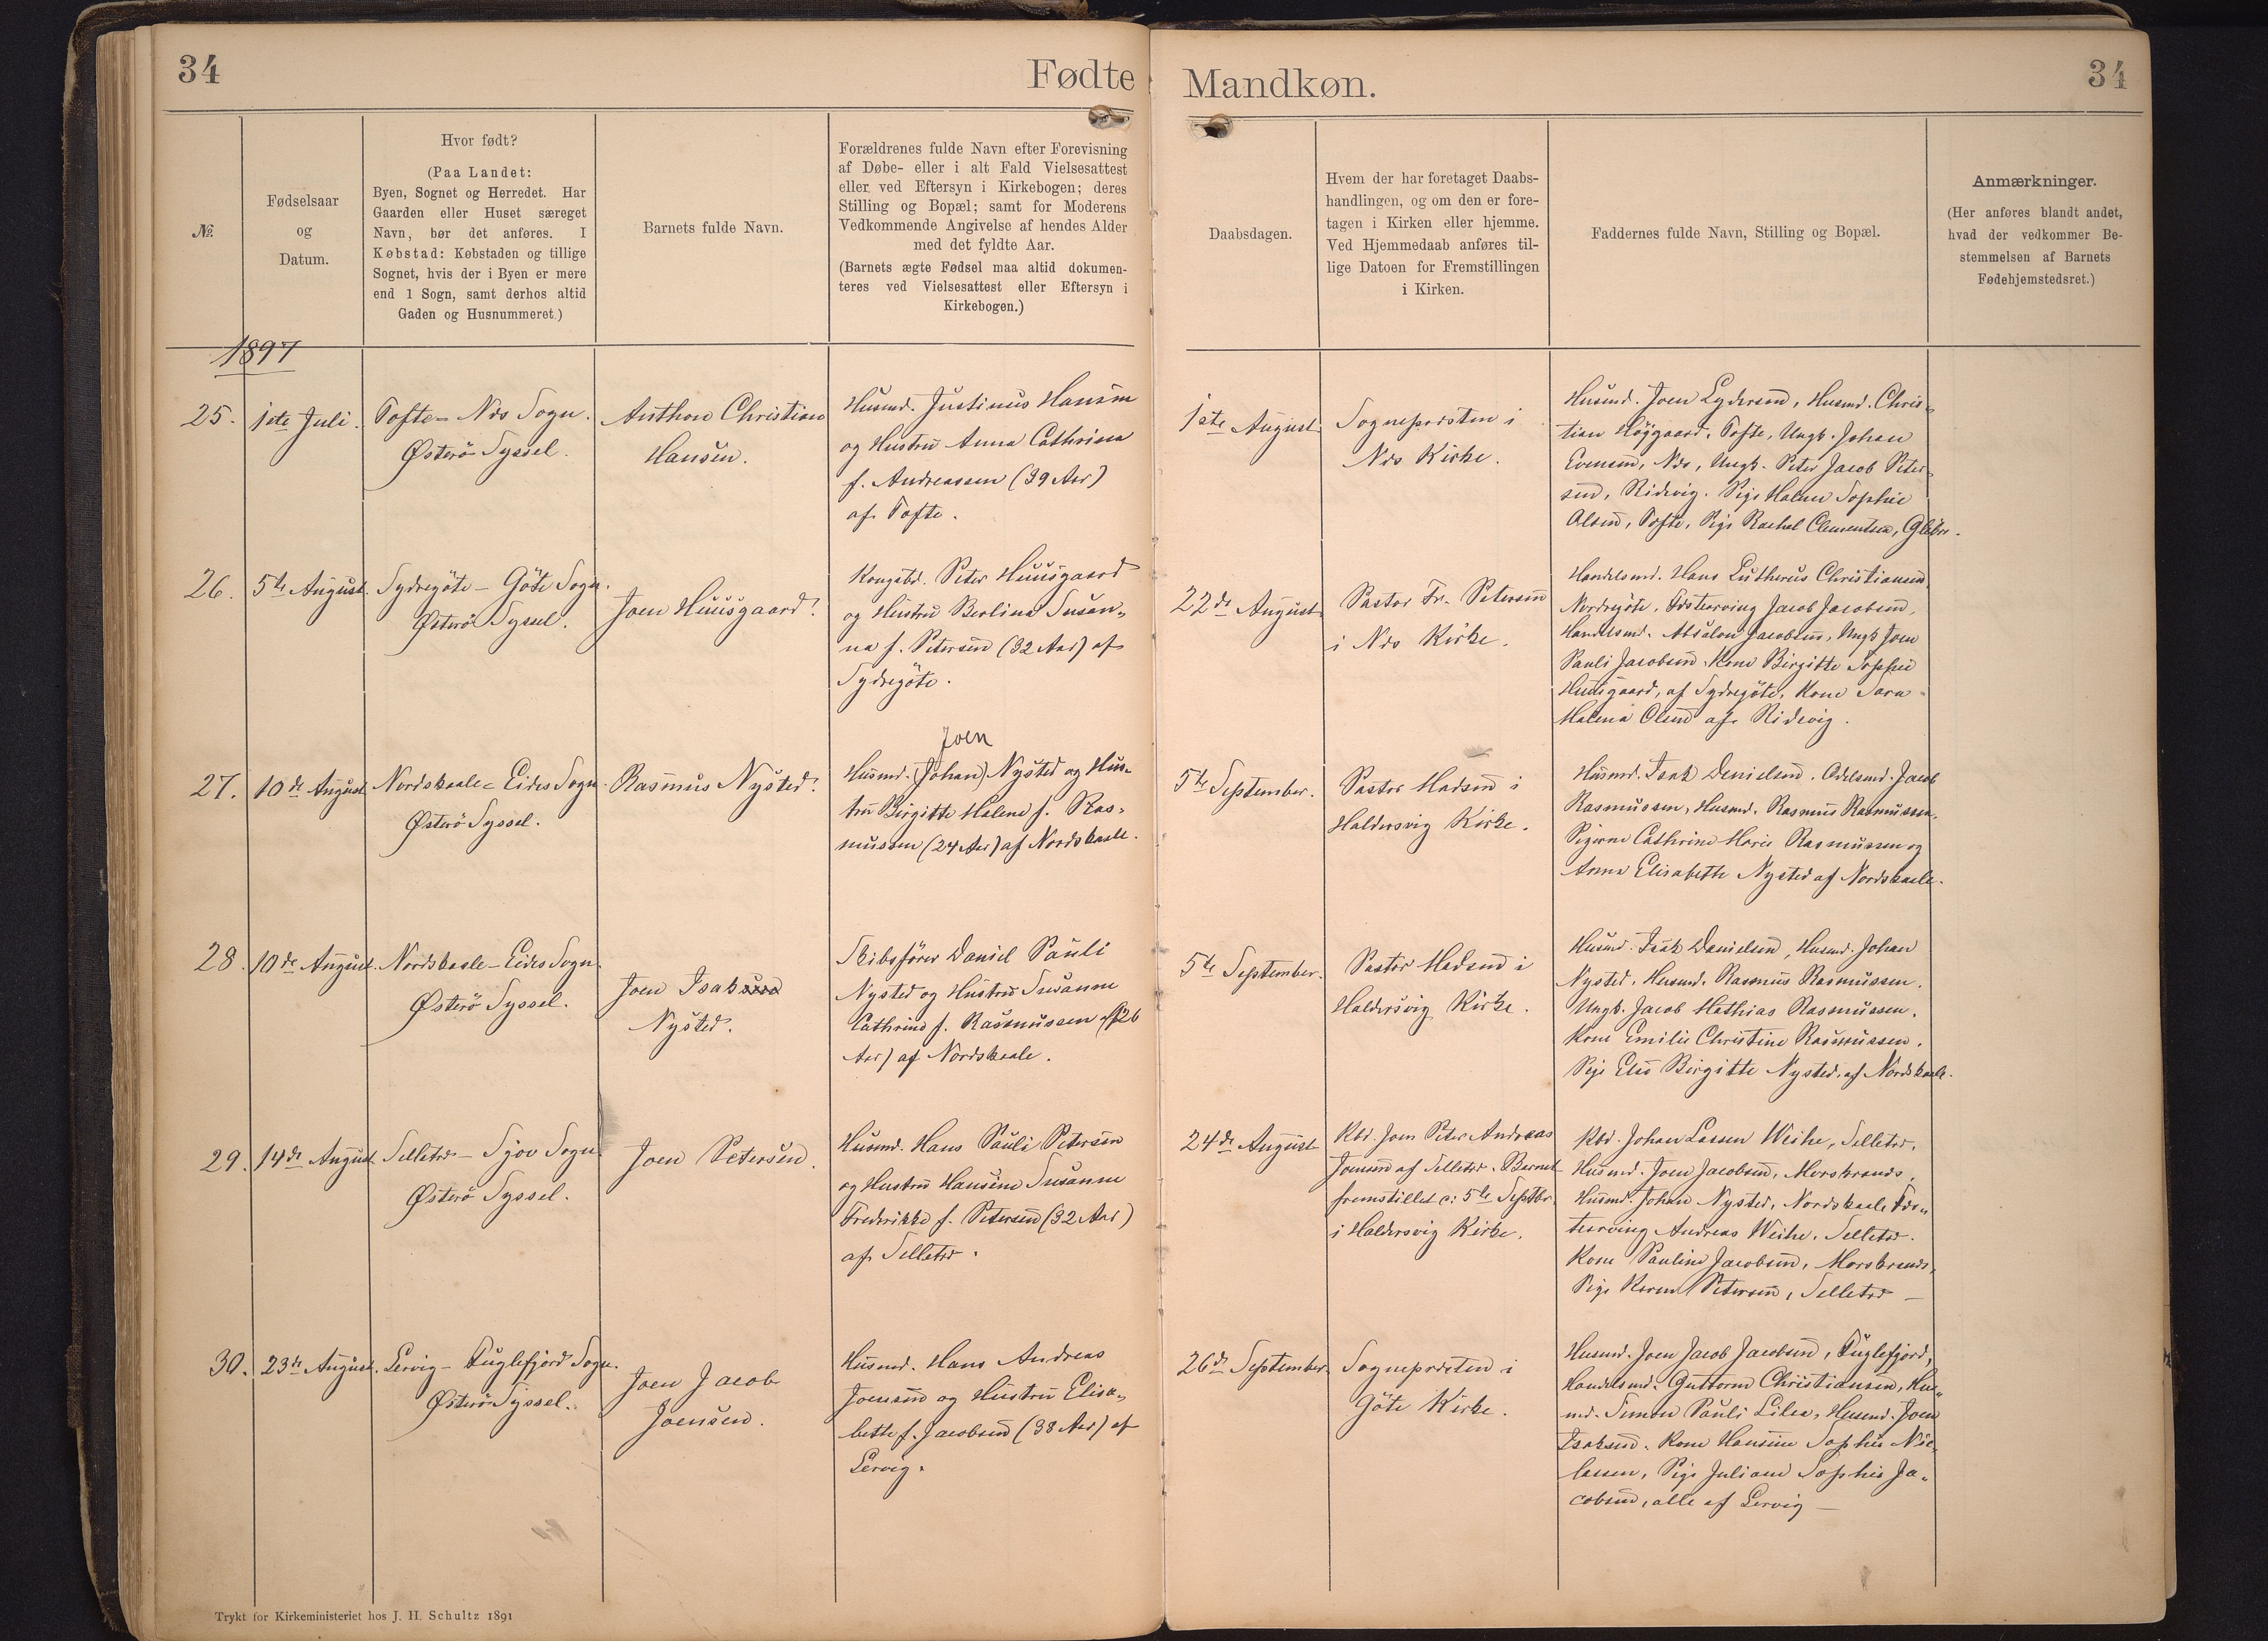 34
Fødte
Mandkøn.
34
№
Fødselsaar
og
Datum.
Hvor født?
(Paa Landet:
Byen, Sognet og Herredet. Har
Gaarden eller Huset særeget
Navn, bør det anføres. I
Købstad: Købstaden og tillige
Sognet, hvis der i Byen er mere
end 1 Sogn, samt derhos altid
Gaden og Husnummeret.)
Barnets fulde Navn.
Forældrenes fulde Navn efter Forevisning
af Døbe- eller i alt Fald Vielsesattest
eller ved Eftersyn i Kirkebogen; deres
Stilling og Bopæl; samt for Moderens
Vedkommende Angivelse af hendes Alder
med det fyldte Aar.
(Barnets ægte Fødsel maa altid dokumen-
teres ved Vielsesattest eller Eftersyn i
Kirkebogen.)
Daabsdagen.
Hvem der har foretaget Daabs-
handlingen, og om den er fore-
tagen i Kirken eller hjemme.
Ved Hjemmedaab anføres til-
lige Datoen for Fremstillingen
i Kirken.
Faddernes fulde Navn, Stilling og Bopæl.
Anmærkninger.
(Her anføres blandt andet,
hvad der vedkommer Be-
stemmelsen af Barnets
Fødehjemstedsret.)
1897
25.
1ste Juli.
Tofte - Nes Sogn.
Østerö Syssel.
Anthon Christian
Hansen.
Husmd. Justinus Hansen
og Hustru Anna Cathrina
f. Andreassen (39 Aar)
af Tofte.
1ste August.
Sognepresten i
Nes Kirke.
Husmd. Joen Lydersen, Husmd. Chris-
tian Höjgaard, Tofte, Ungk. Johan
Evensen, Nes, Ungk. Peter Jacob Peter-
sen, Ridevig. Pige Malene Sophie
Olsen, Tofte, Pige Rachel Clementsen, Glibre.
26.
5te August.
Sydregöte - Göte Sogn.
Österö Syssel.
Joen Huusgaard.
Kongsbd. Peter Huusgaard
og Hustru Berlina Susan-
na f. Petersen (32 Aar) af
Sydregöte.
22de August.
Pastor Fr. Petersen
i Nes Kirke.
Handelsmd. Hans Lutherus Christiansen,
Nordregöte, Festearving Jacob Jacobsen,
Handelsmd. Absalon Jacobsen, Ungk Joen
Pauli Jacobsen. Kone Birgitte Sophie
Huusgaard, af Sydregöte, Kone Sara
Malena Olsen af Ridevig.
27.
10de August
Nordskaale - Eides Sogn.
Österö Syssel.
Rasmus Nysted.
Joen
Husmd. (Johan) Nysted og Hus-
tru Birgitte Malene f. Ras-
mussen (24 Aar) af Nordskaale.
5te September.
Pastor Madsen i
Haldersvig Kirke.
Husmd. Isak Danielsen. Odelsmd. Jacob
Rasmussen, Husmd. Rasmus Rasmussen.
Pigerne Cathrine Marie Rasmussen og
Anna Elisabette Nysted af Nordskaale.
28.
10de August.
Nordskaale - Eides Sogn
Österö Syssel.
Joen Isaksen
Nysted.
Skibsfører Daniel Pauli
Nysted og Hustru Susanne
Cathrine f. Rasmussen (26
Aar) af Nordskaale.
5te September.
Pastor Madsen i
Haldersvig Kirke.
Husmd. Isak Danielsen, Husmd. Johan
Nysted. Husmd. Rasmus Rasmussen.
Ungk. Jacob Mathias Rasmussen.
Kone Emilie Christine Rasmussen.
Pige Else Birgitte Nysted, af Nordskaale.
29.
14de August
Selletre - Sjov Sogn
Østerö Syssel.
Joen Petersen.
Husmd. Hans Pauli Petersen
og Hustru Hansine Susanne
Frederikke f. Petersen (32 Aar)
af Selletre.
24de August
Kbd. Joen Peter Andreas
Joensen af Selletre. Barnet
fremstillet d: 5te Septbr.
i Haldersvig Kirke.
Kbd. Johan Lassen Weihe, Selletre.
Husmd. Joen Jacobsen, Morskranes,
Husmd. Johan Nysted, Nordskaale, Fes-
tearving Andreas Weihe, Selletre.
Kone Pauline Jacobsen, Morskranes,
Pige Karen Petersen, Selletre —
30.
23de August.
Lervig - Fuglefjord Sogn.
Østerö Syssel.
Joen Jacob
Joensen.
Husmd. Hans Andreas
Joensen og Hustru Elisa-
bette f. Jacobsen (38 Aar) af
Lervig.
26de September.
Sognepresten i
Göte Kirke.
Husmd. Joen Jacob Jacobsen, Fuglefjord,
Handelsmd. Guttorm Christiansen, Hus-
md. Simon Pauli Lilaa, Husmd. Joen
Isaksen. Kone Hansine Sophie Nic-
lassen, Pige Juliane Sophie Ja-
cobsen, alle af Lervig —
Trykt for Kirkeministeriet hos J. H. Schultz 1891